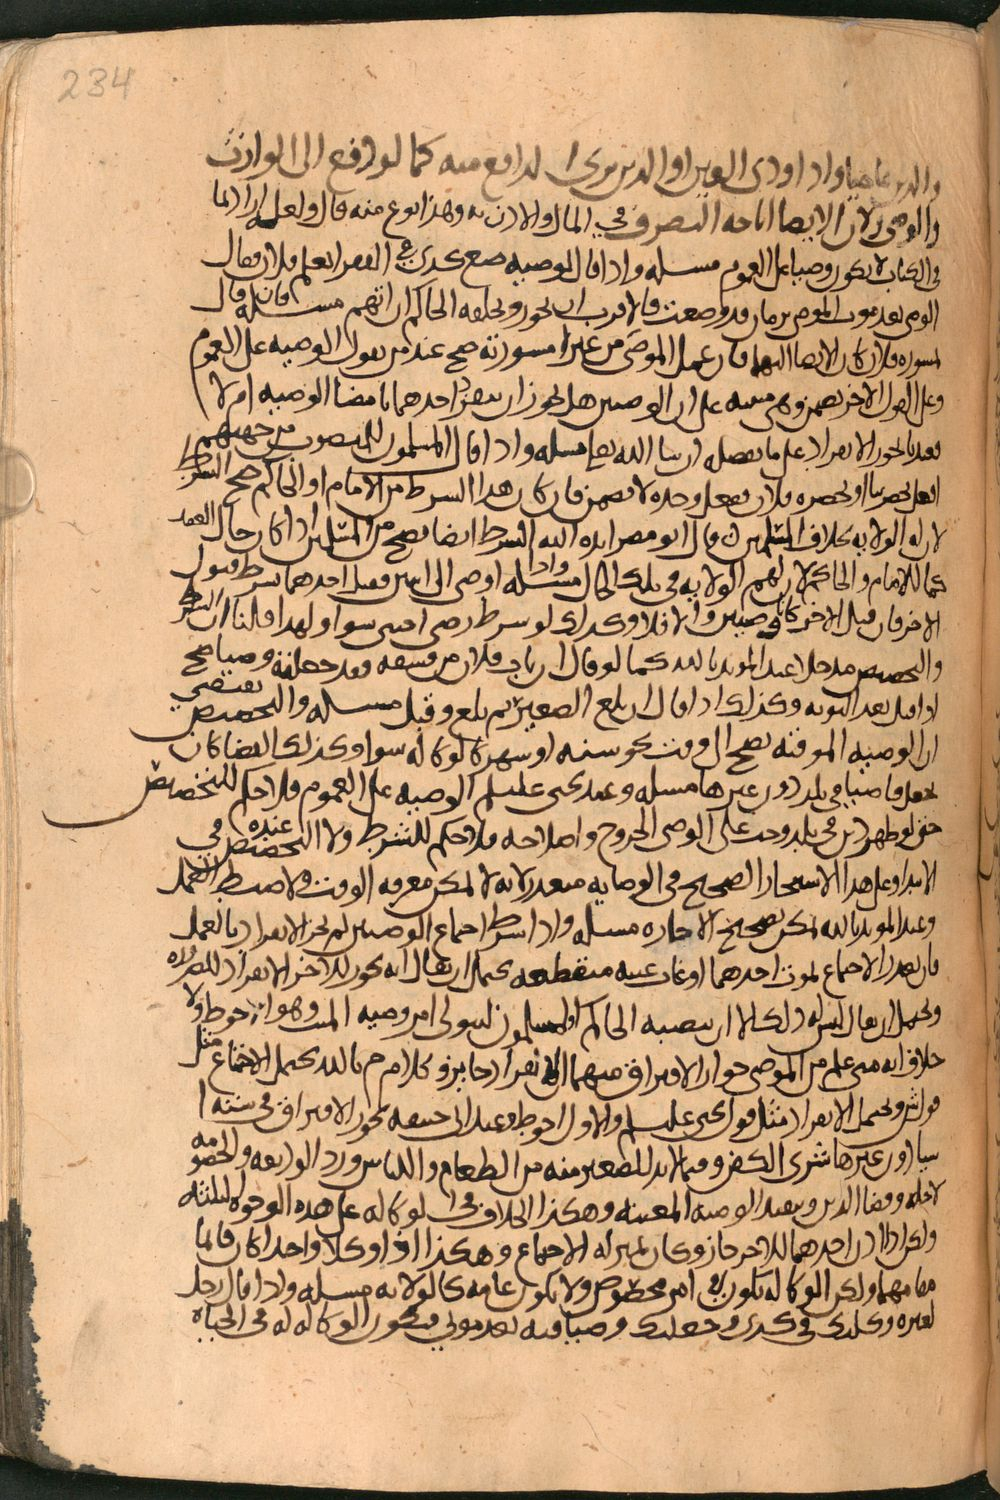 234
واد اودى العين او الدين برى الدافع منه كما لو دفع الى الوارث
والوصى ولان الايصا اباحه التصرف في المال والاذن به وهذا نوع منه قال ولعل اراد بما
فى الكتاب لا يكون وصيا على العموم مسله واد اقال لوصيه ضع كدى في الفقرا بعلم فلان فقال
الوصى بعد موت الموصى بزمان قد وضعت فالاقرب انه يجوز ويحلفه الحاكم ان اتهم مسله فان قال
بمشوره فلان كان الايصا اليهما فان عمل الوصى من غير مشورته صح عند من يقول الوصيه على العموم
وعلى القول الاخر يضمن وهى مبنيه على ان الوصيين هل يجوز ان ينفرد احدهما بامضا الوصيه ام لا
فعندنا يجوز الانفراد على ما نفصله ان شا الله تعالى مسله واد اقال المسلمون للمنصوب من جهتهم
افعل بحضرتنا او بحضره فلان ففعل وحده لا يضمن فان كان هذا الشرط من الامام او الحاكم صح الشرط
لان له الولايه بخلاف المسلمين قال ابو مضر ايده الله الشرط ايضا يصح من المسلمين اذا كان حال العقد
كما للامام والحاكم لان لهم الولايه في تلك الحال مسله واذا اوصى الى اثنين فقبل احدهما بشرط قبول
الاخر فان قبل الاخر كانا وصيين والا فلا وكذلك لو شرط رضى اجنبى سوا ولهذا قالنا ان الشرط
والتخصيص مدخل عند المويد بالله كما لو قال ان تاب فلان من فسقه فقد جعلته وصيا صح
اذا قبل بعد التوبه وكذلك اذا قال ان بلغ الصغير ثم بلغ وقبل مسله والتخصيص يقتضى
ان الوصيه الموقته تصح الى وقت نحو سنه او شهر كالوكاله سوا وكذلك القضا كان
يجعل قاضيا في بلد دون غيرها مسله وعند يحيى عليلم الوصيه على العموم فلا حكم للتخصيص
حق لو ظهر دين في بلد وجب على الوصى الخروج واصلاحه فلا حكم للشرط ولا التخصيص عنده في
الابتدا وعلى هذا الاستيجار الصحيح في الوصايه متعذر لانه لا يمكن معرفه الوقت ولا ضبط العمل
وعند المويد بالله يمكن تصحيح الاجاره مسله واذا شرط اجتماع الوصيين لم يجز الانفراد بالعمل
فان تعذر الاجتماع لموت احدهما او غاب غيبه منقطعه يحتمل ان يقال انه يجوز للاخر الانفراد للضروره
ويحتمل ان يقال ليس له ذلك الا ان ينصبه الحاكم او المسلمون ليتولى امر وصيه الميت وهو احوط ولا
خلاف انه متى علم من الموصى جواز الافتراق منهما ان الانفراد جايز وكلام م بالله يحتمل الاجتماع مثل
قول ش ويحتمل الانفراد مثل قول يحيى عليلم والاول احوط وعند ابى حنيفه يجوز الافتراق في سته ا
شيا دون غيرها شرى الكفن وما لا بد للصغير منه من الطعام واللباس ورد الوديعه والخصومه
لاجله وقضا الدين وتنفيذ الوصيه المعينه وهكذا الخلاف في الوكاله على هذه الوجوه الثلثه
ولكن اذا اذن احدهما للاخر جاز وكان بمنزله الاجتماع وهكذا اذا وكلا واحدا كان قايما
مقامهما ولكن الوكاله تكون في امر مخصوص ولا تكون عامه كالولايه مسله واذا قال رجل
لغيره وكلتك في كدى وجعلتك وصيا فيه بعد موتى فيكون الوكاله له في الحياه